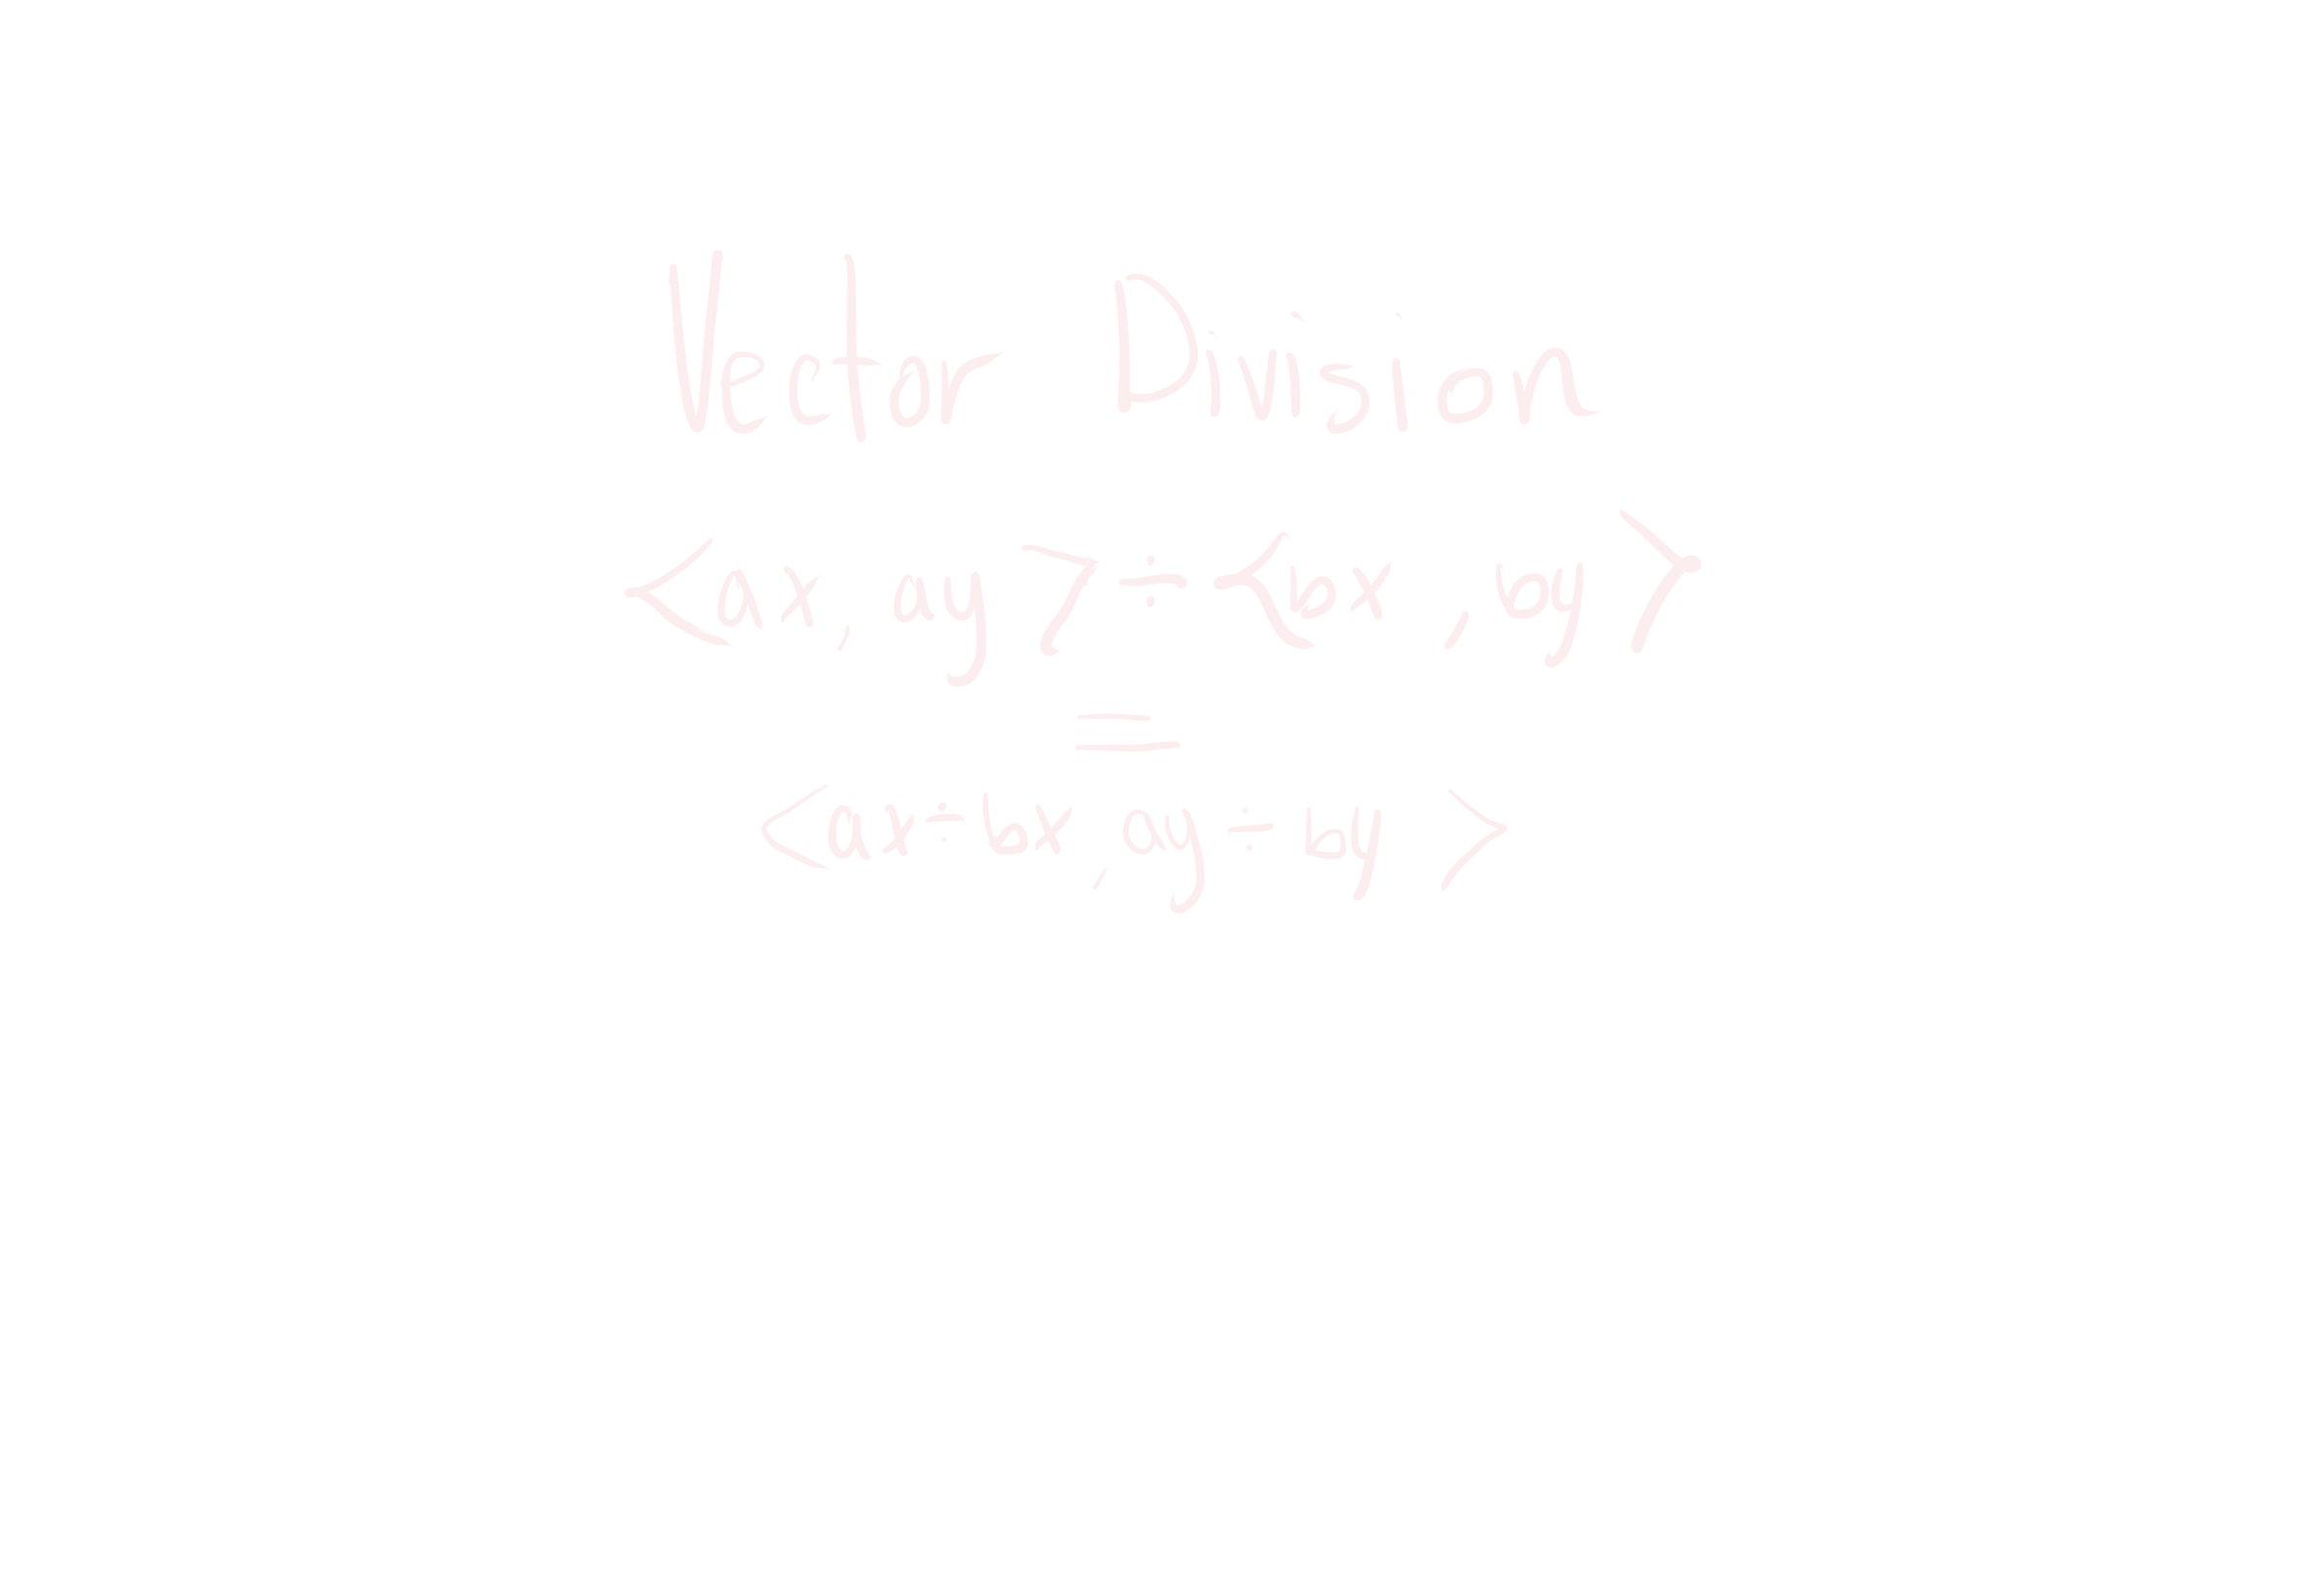 Vector Division
<ax, ay> ÷ <bx, by>
=
<ax÷bx, ay÷by>